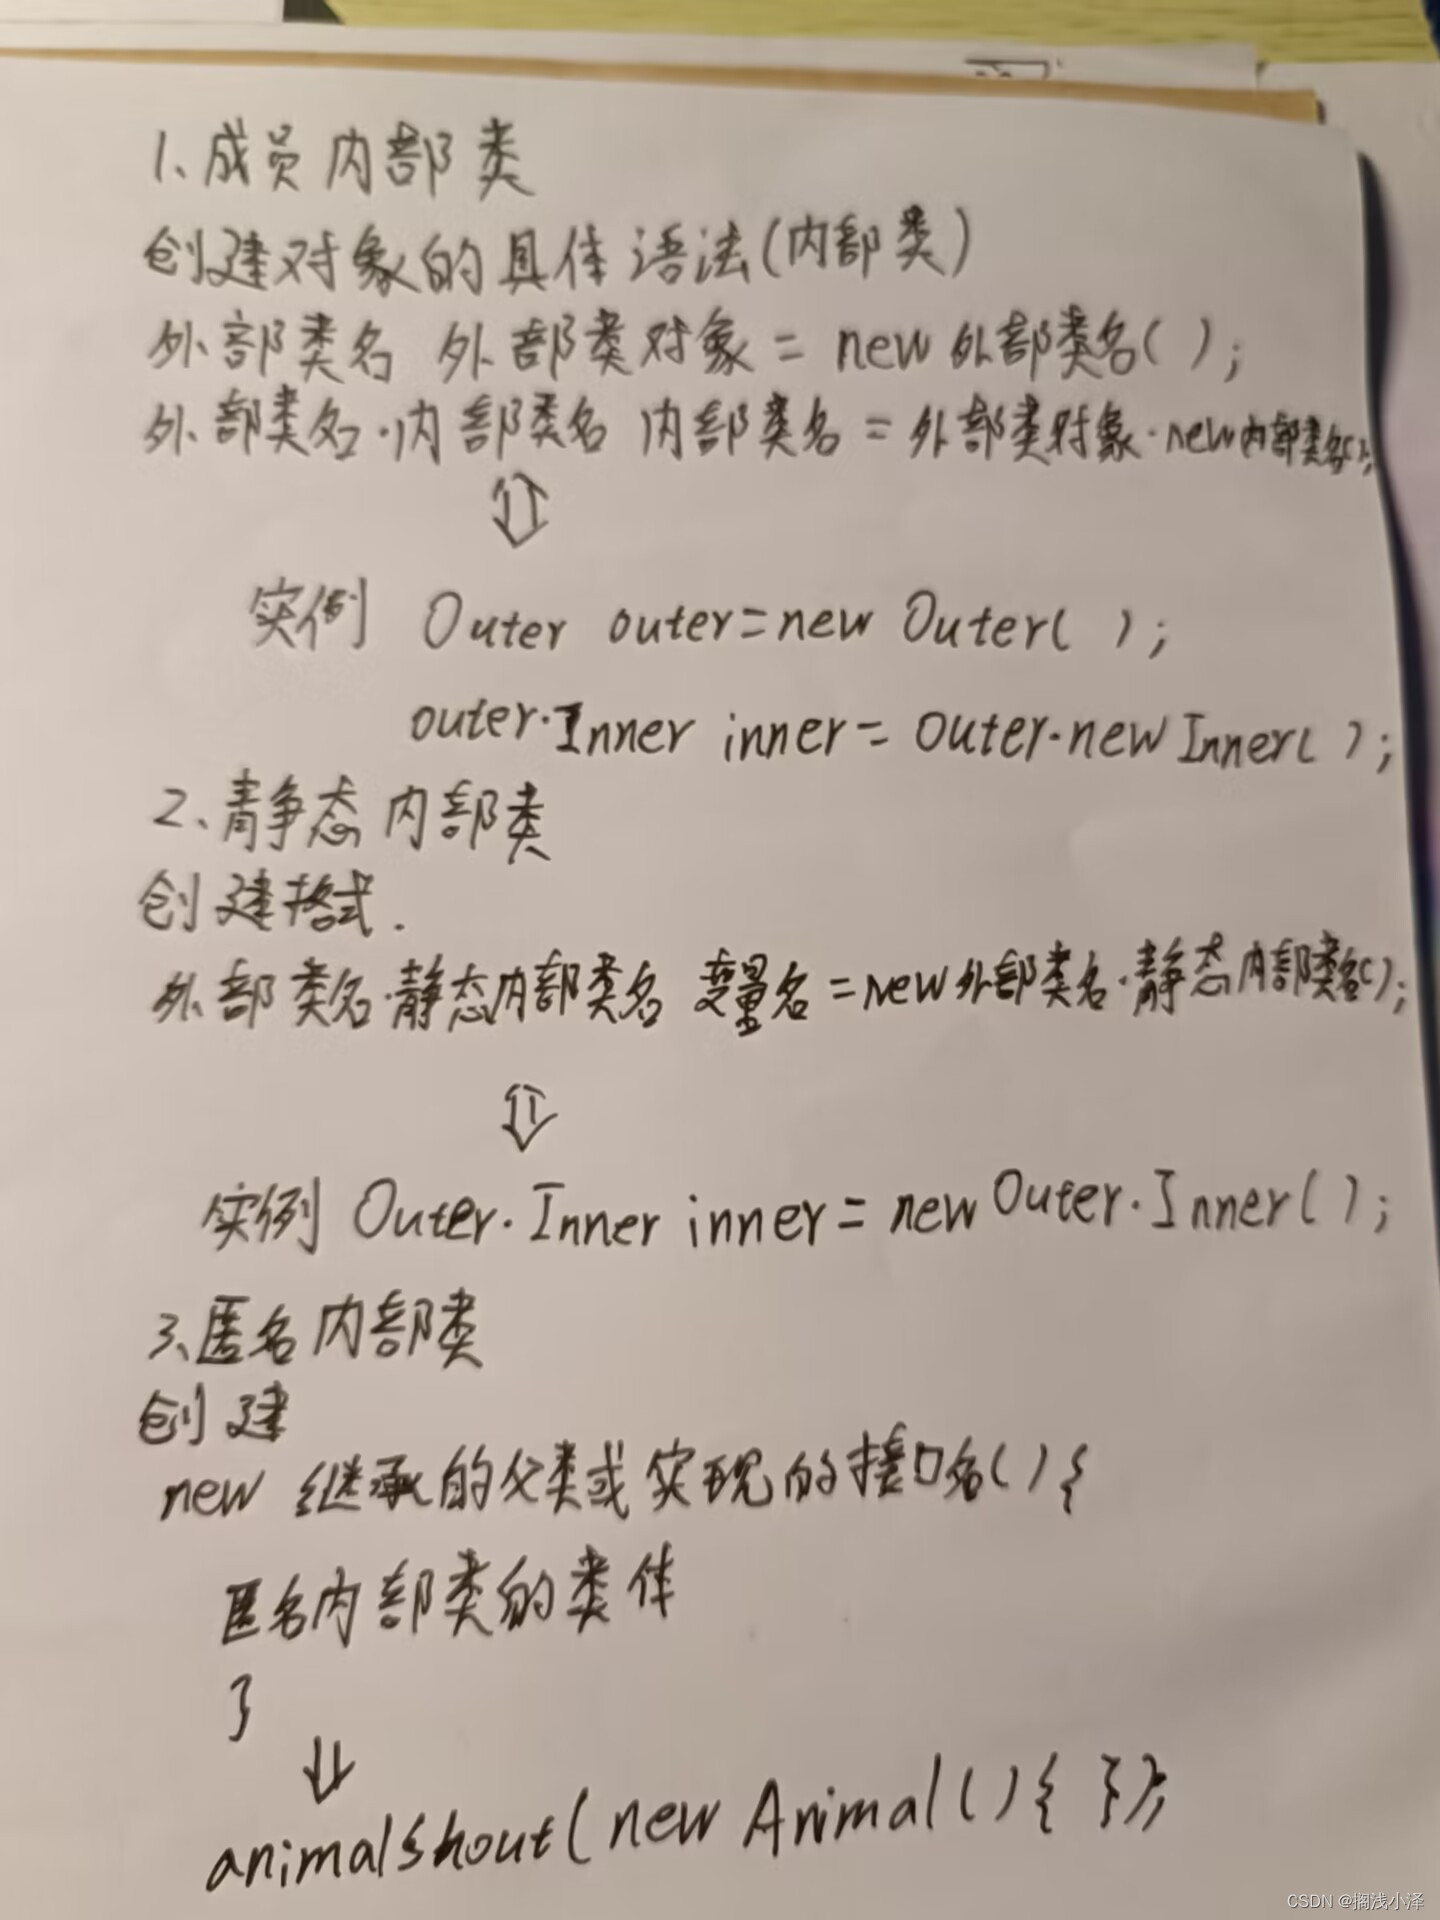 1、成员内部类
创建对象的具体语法(内部类)
外部类名 外部类对象 = new 外部类名( );
外部类名.内部类名 内部类名 = 外部类对象.new内部类名();
实例 Outer outer=new Outer( );
outer.Inner inner = Outer.new Inner( );
2、静态内部类
创建格式.
外部类名.静态内部类名 变量名 = new外部类名.静态内部类名();
实例 Outer.Inner inner = new Outer.Inner( );
3、匿名内部类
创建
new 继承的父类或实现的接口名( ) {
匿名内部类的类体
}
animalShout( new Animal ( ) { } );
CSDN @搁浅小泽